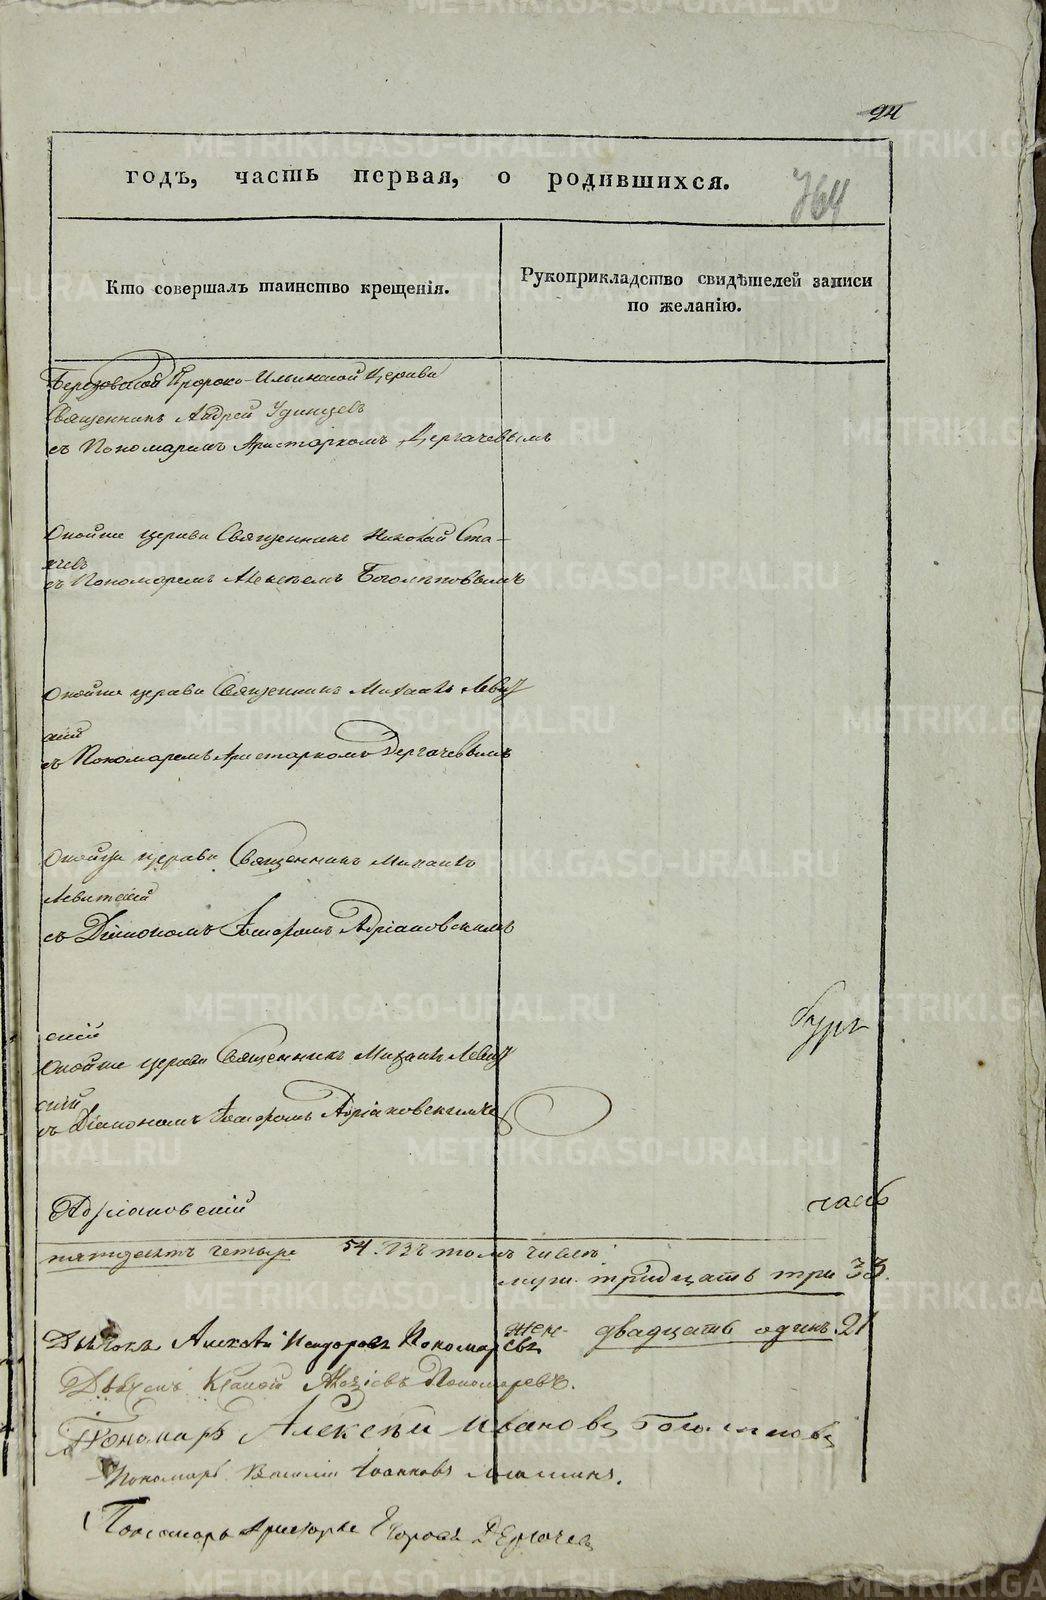 94
годъ, часть первая, о родившихся.
764
Кто совершалъ таинство крещенія.
Рукоприкладство свидѣтелей записи
по желанію.
Пророко-Ильинской Церкви
Священникъ Андрей Удинцевъ
съ Пономаремъ Аристархомъ Дергачевымъ
Онойже церкви Священникъ Николай
съ Пономаремъ Алексѣемъ Боголѣповымъ
Онойже церкви Священникъ Михаилъ Левит
скій
съ Пономаремъ Аристархомъ Дергачевымъ
Онойже церкви Священникъ Михаилъ
Левитскій
съ Діакономъ Адріановскимъ
скій
Онойже церкви Священникъ Михаилъ Левит
скій
съ Діакономъ Адріановскимъ
Адріановскій
пятдесятъ четыре 54. Въ томъ числѣ
муж. тридцать три 33.
жен. двадцать одинъ 21
Дьячокъ Алексѣй Пономаревъ
Дьячекъ Пономаревъ.
Пономарь Алексѣй Ивановъ Боголѣповъ
Пономарь Василій Іоанновъ
Пономарь Аристархъ Егоровъ Дергачевъ
METRIKI.GASO-URAL.RU